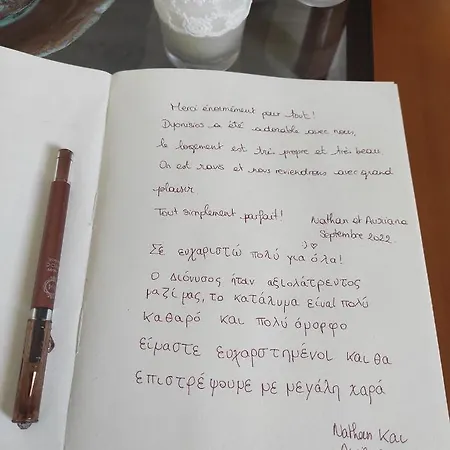 Merci énormément pour tout!
Dyonisios a été adorable avec nous,
le logement est très propre et très beau.
On est ravis et nous reviendrons avec grand
plaisir
Tout simplement parfait!
Nathan et Auriana
Septembre 2022.
Σε ευχαριστώ πολύ για όλα!
Ο Διόνυσος ήταν αξιολάτρευτος
μαζί μας, το κατάλυμα είναι πολύ
καθαρό και πολύ όμορφο
είμαστε ευχαρστημένοι και θα
επιστρέψουμε με μεγάλη χαρά
Nathan και